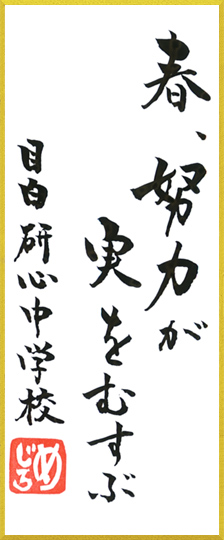 春、努力が
実をむすぶ
目白研心中学校
めじろ